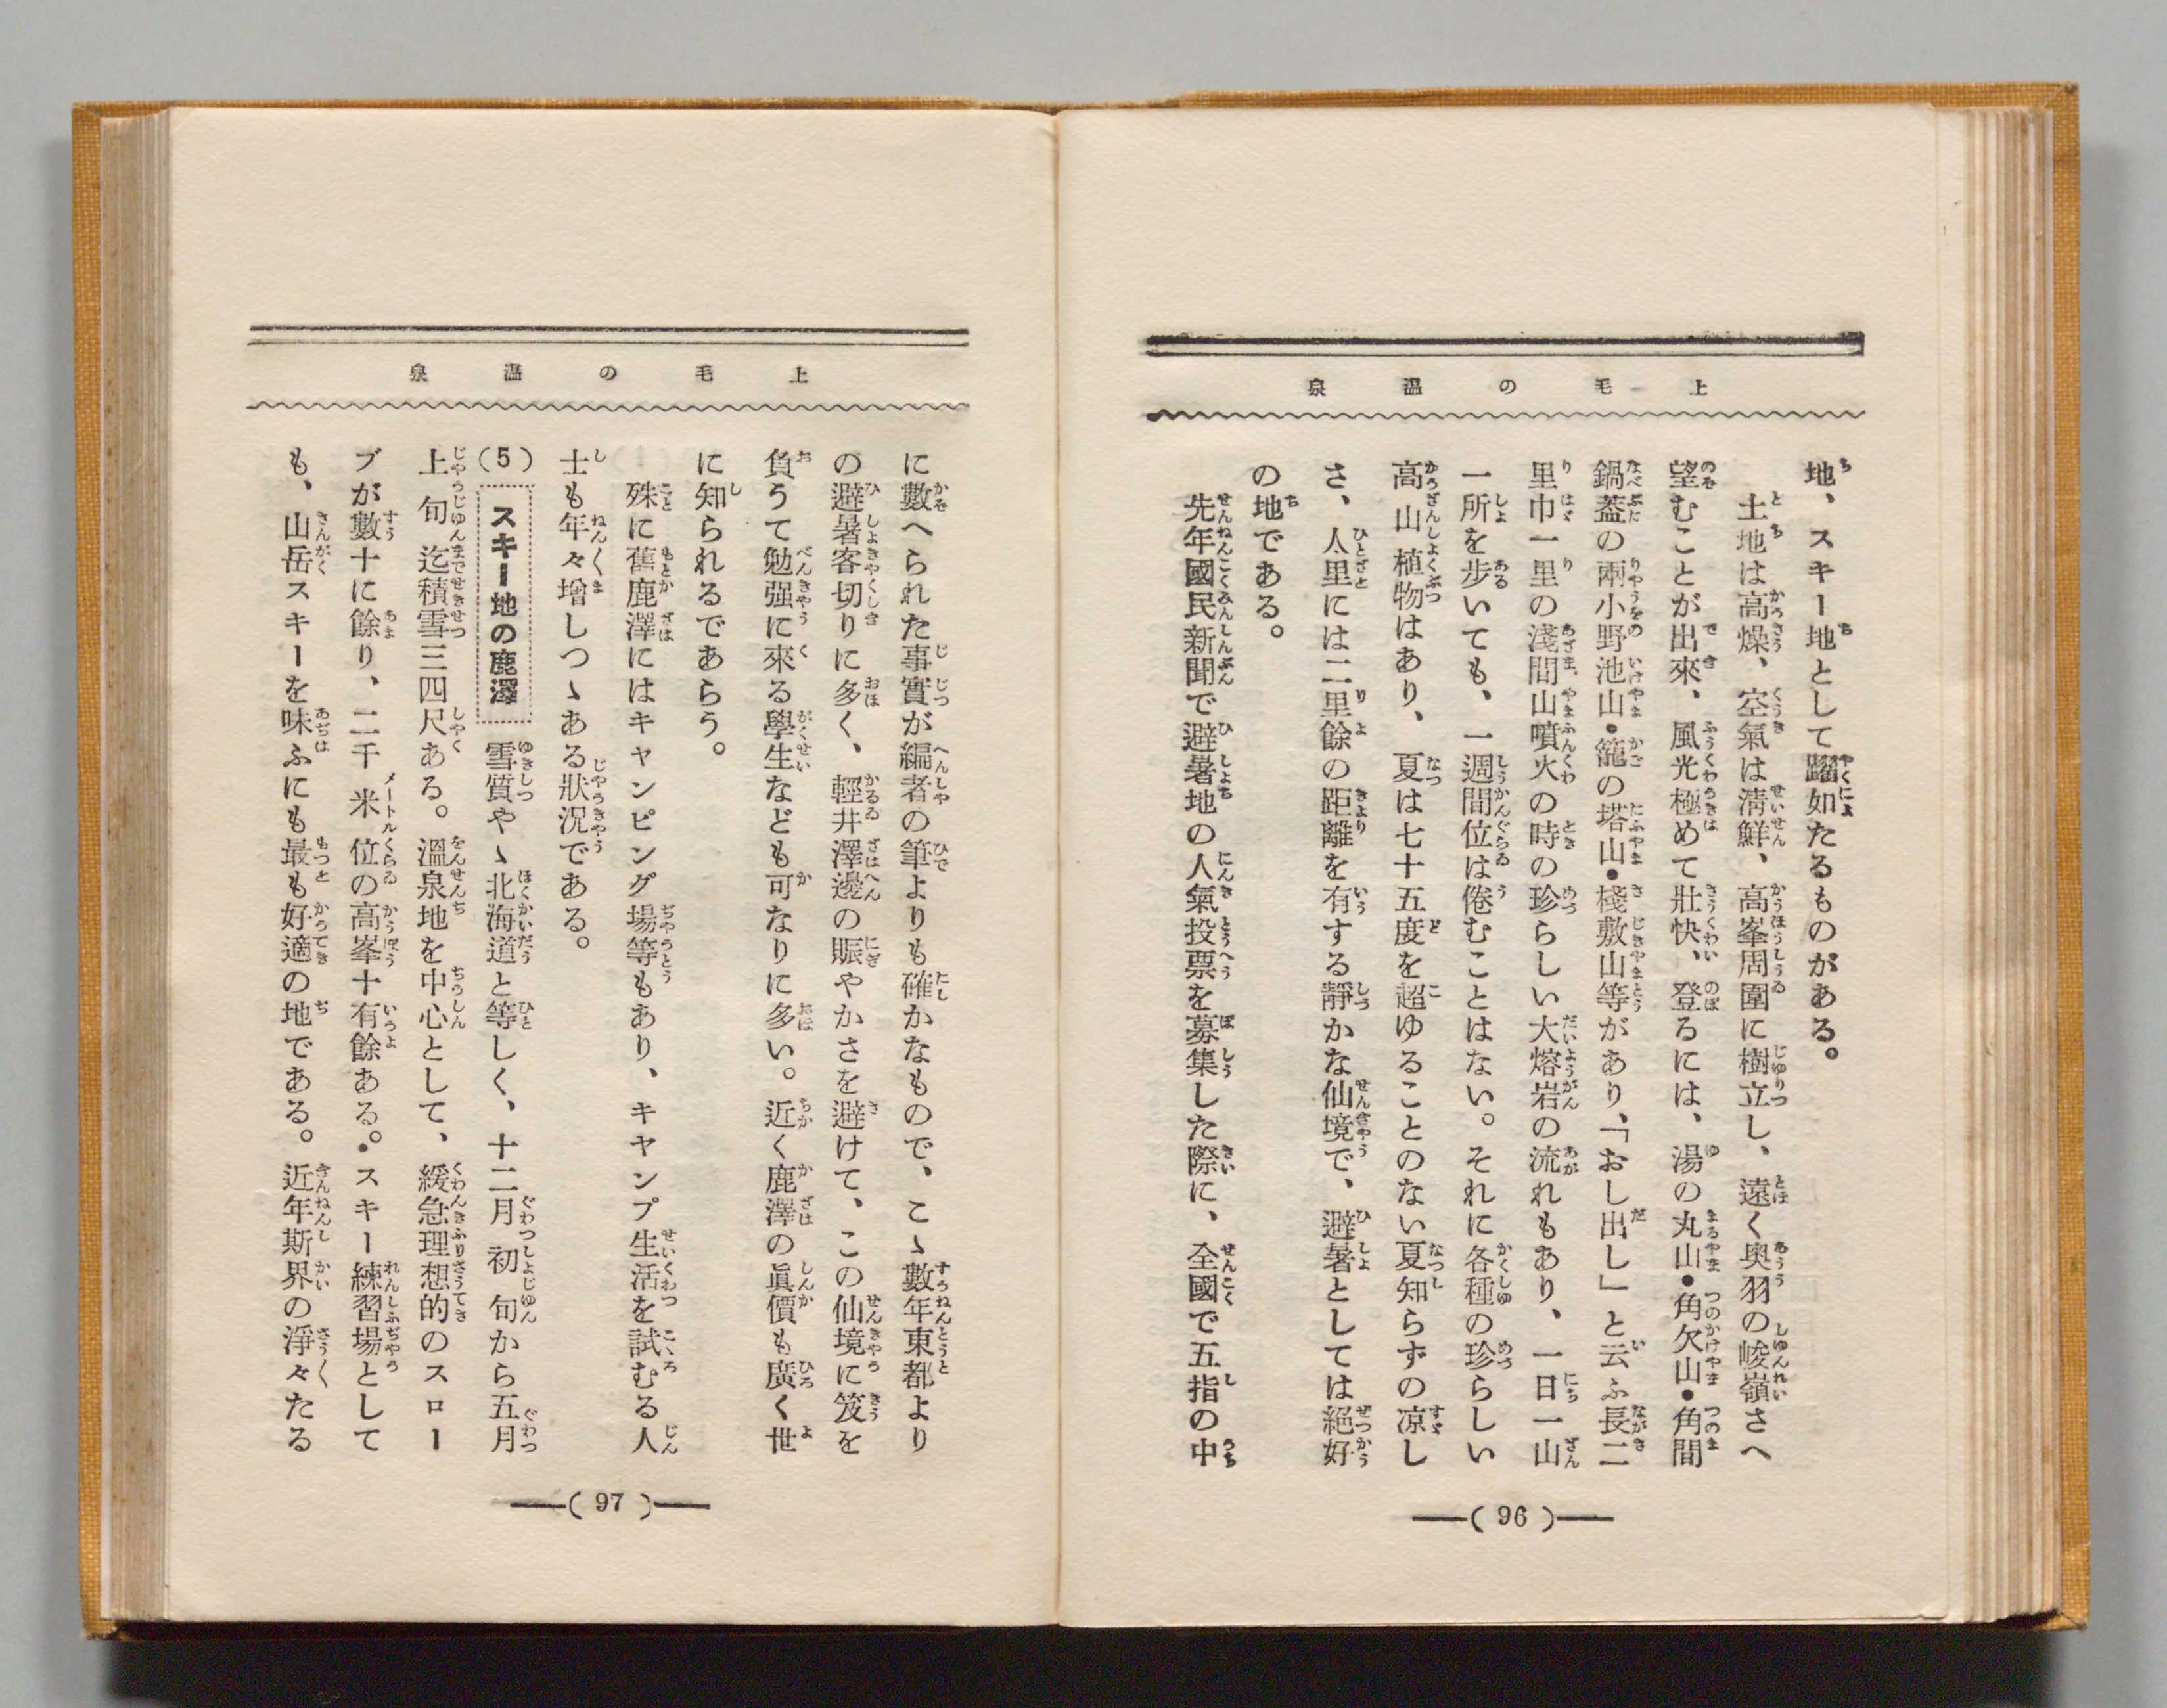 上毛の温泉
地、スキー地として躍如たるものがある。
土地は高燥、空氣は淸鮮、高峯周圍に樹立し、遠く奥羽の峻嶺さへ
望むことが出來、風光極めて壯快、登るには、湯の丸山・角欠山・角間
鍋蓋の兩小野池山・籠の塔山・棧敷山等があり、「おし出し」と云ふ長二
里巾一里の淺間山噴火の時の珍らしい大熔岩の流れもあり、一日一山
一所を歩いても、一週間位は倦むことはない。それに各種の珍らしい
高山植物はあり、夏は七十五度を超ゆることのない夏知らずの凉し
さ、人里には二里餘の距離を有する靜かな仙境で、避暑としては絕好
の地である。
先年國民新聞で避暑地の人氣投票を募集した際に、全國で五指の中
(96)
上毛の温泉
に數へられた事實が編者の筆よりも確かなもので、こゝ數年東都より
の避暑客切りに多く、輕井澤邊の賑やかさを避けて、この仙境に笈を
負うて勉强に來る學生なども可なりに多い。近く鹿澤の眞價も廣く世
に知られるであらう。
殊に舊鹿澤にはキャンピング場等もあり、キヤンプ生活を試むる人
士も年々增しつゝある狀況である。
(5) スキー地の鹿澤 雪質やゝ北海道と等しく、十二月初旬から五月
上旬迄積雪三四尺ある。溫泉地を中心として、緩急理想的のスロー
ブが數十に餘り、二千米位の高峯十有餘ある。スキー練習場として
も、山岳スキーを味ふにも最も好適の地である。近年斯界の淨々たる
(97)